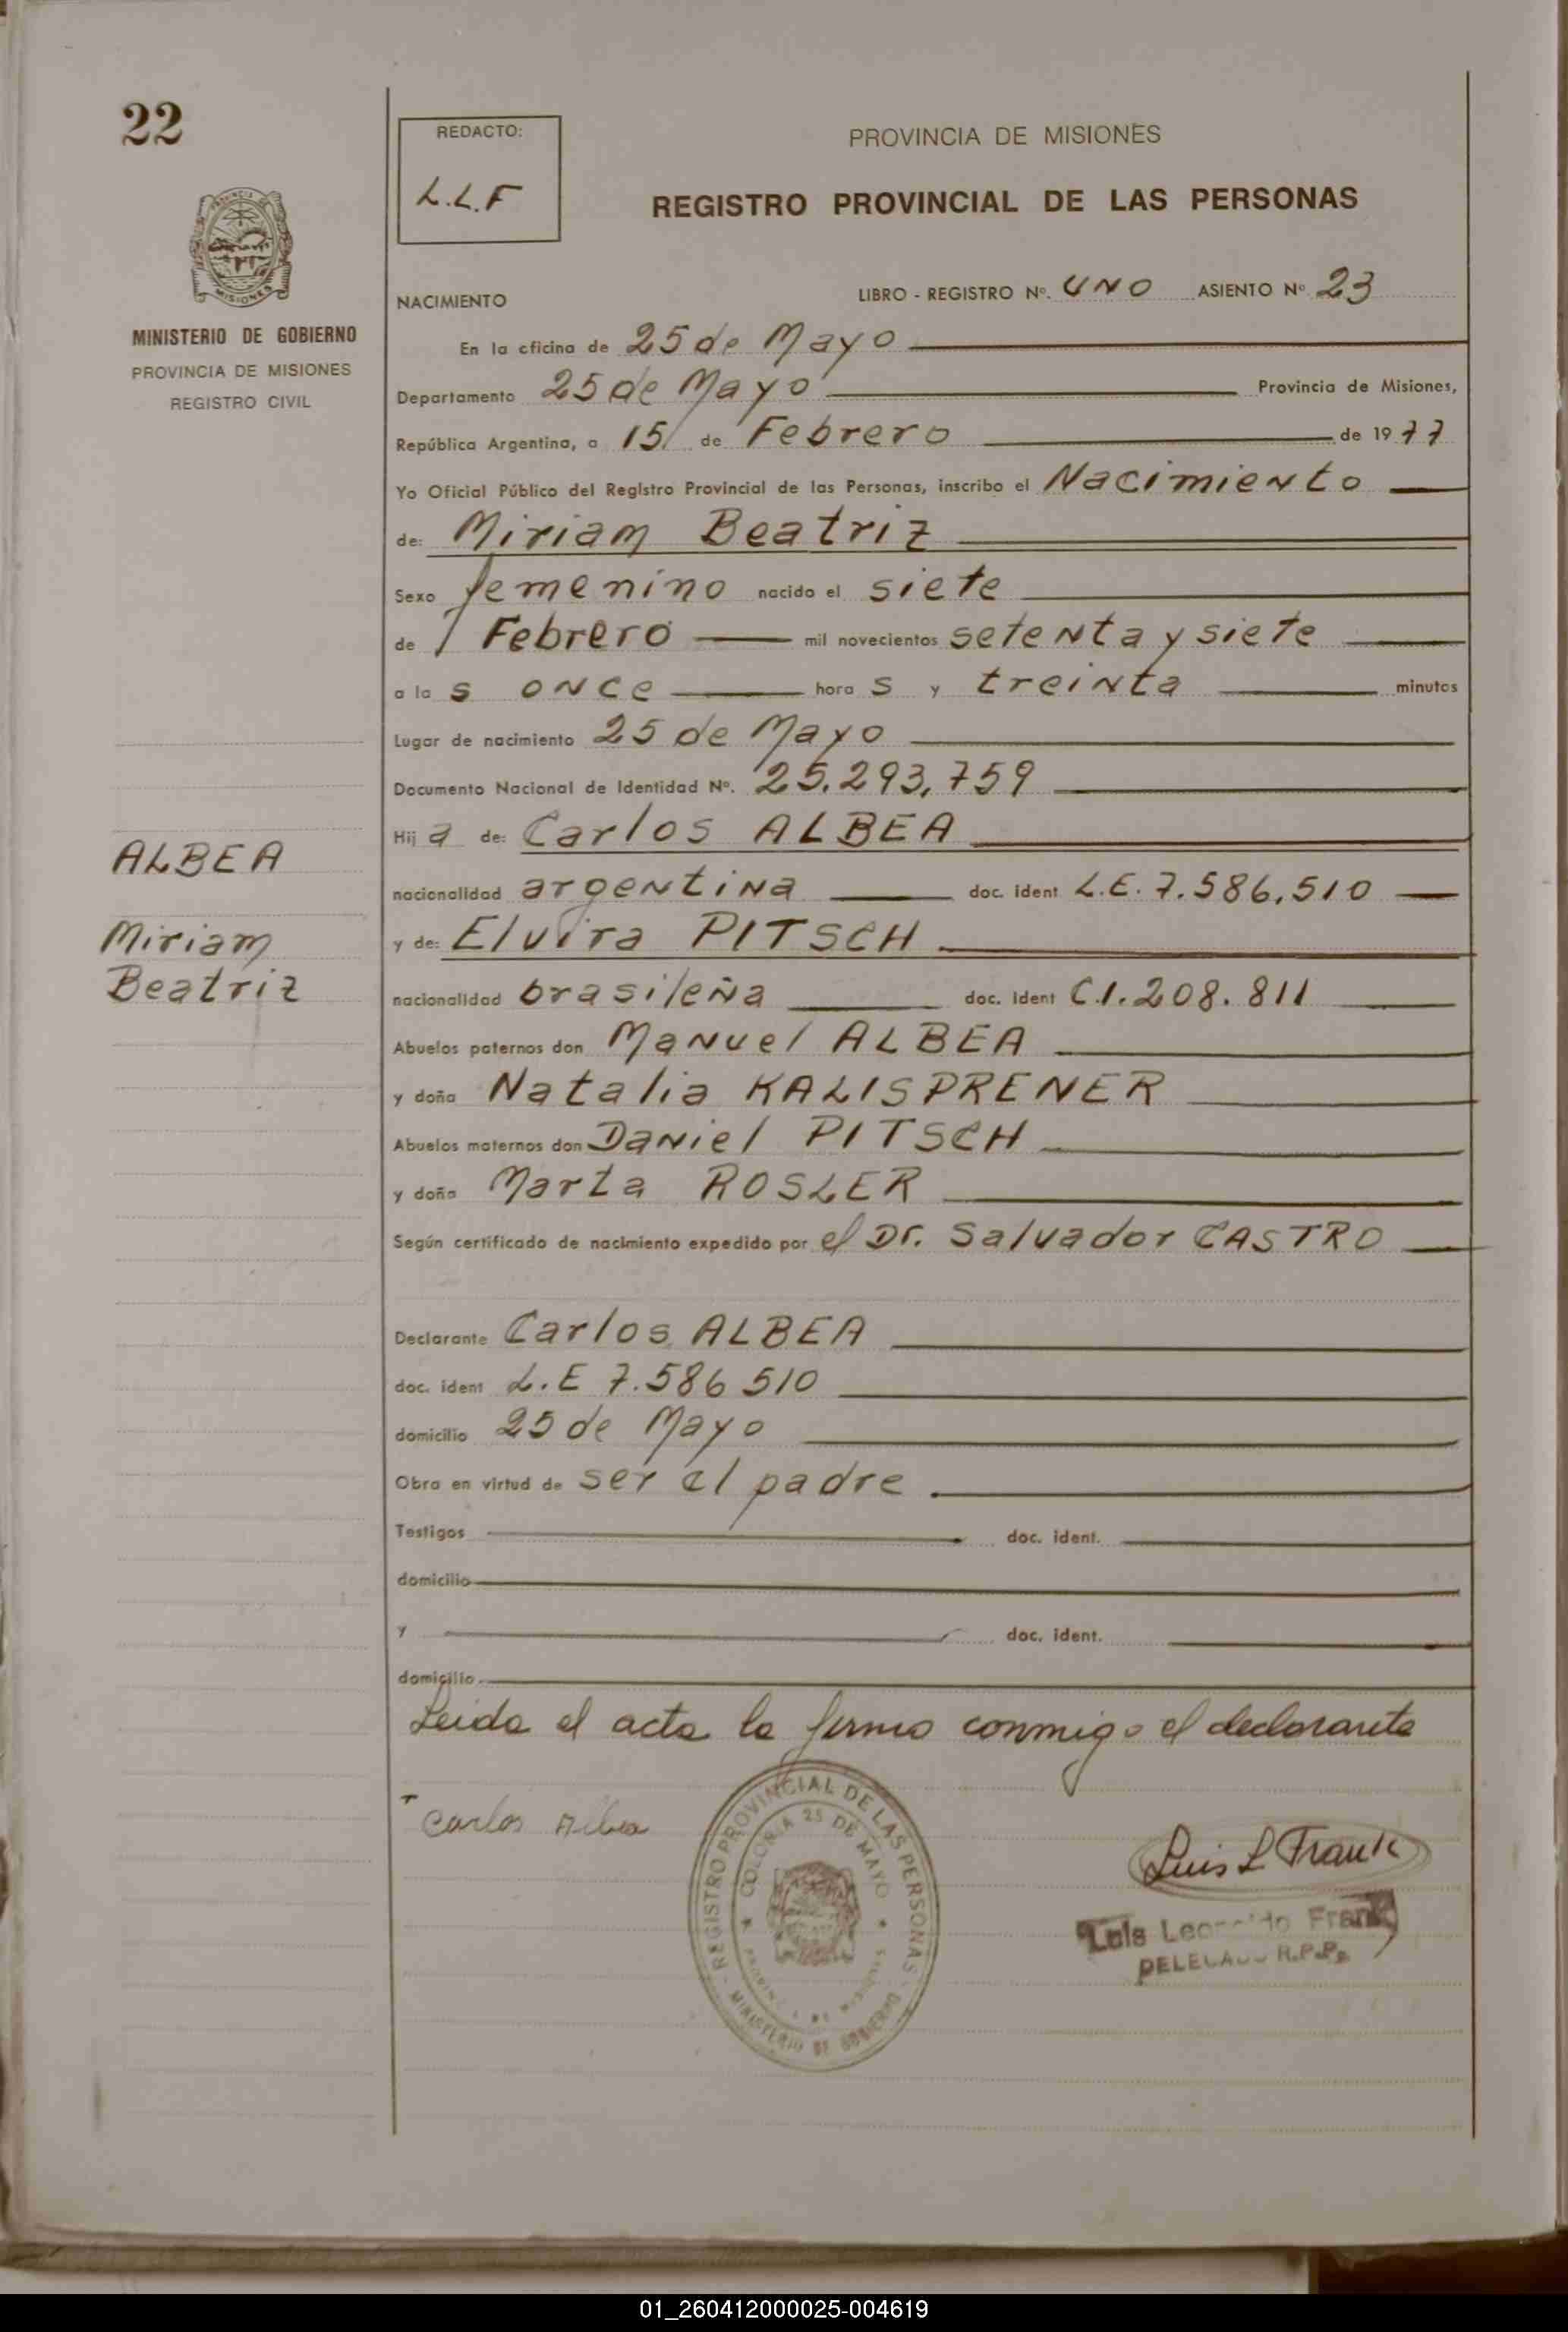 22
REDACTO:
L.L.F
PROVINCIA DE MISIONES
REGISTRO PROVINCIAL DE LAS PERSONAS
MISIONES
MINISTERIO DE GOBIERNO
PROVINCIA DE MISIONES
REGISTRO CIVIL
NACIMIENTO
LIBRO - REGISTRO Nº. UNO ASIENTO Nº 23
En la oficina de 25 de Mayo
Departamento 25 de Mayo Provincia de Misiones,
República Argentina, a 15 de Febrero de 1977
Yo Oficial Público del Registro Provincial de las Personas, inscribo el Nacimiento
de: Miriam Beatriz
Sexo femenino nacido el siete
de Febrero mil novecientos setenta y siete
a las once horas y treinta minutos
Lugar de nacimiento 25 de Mayo
Documento Nacional de Identidad Nº. 25.293,759
Hija de: Carlos ALBEA
nacionalidad argentina doc. ident L.E. 7.586,510
y de: Elvira PITSCH
nacionalidad brasileña doc. ident C.I. 208.811
Abuelos paternos don Manuel ALBEA
y doña Natalia KALISPRENER
Abuelos maternos don Daniel PITSCH
y doña Marta ROSLER
Según certificado de nacimiento expedido por el Dr. Salvador CASTRO
ALBEA
Miriam
Beatriz
Declarante Carlos ALBEA
doc. ident L.E 7.586 510
domicilio 25 de Mayo
Obra en virtud de ser el padre.
Testigos doc. ident.
domicilio
y doc. ident.
domicilio
Leida el acta la firma conmigo el declarante
Carlos Albea
REGISTRO PROVINCIAL DE LAS PERSONAS
COLONIA 25 DE MAYO
MINISTERIO DE GOBIERNO
Luis L Frank
Luis Frank
R.P.P.
01_260412000025-004619